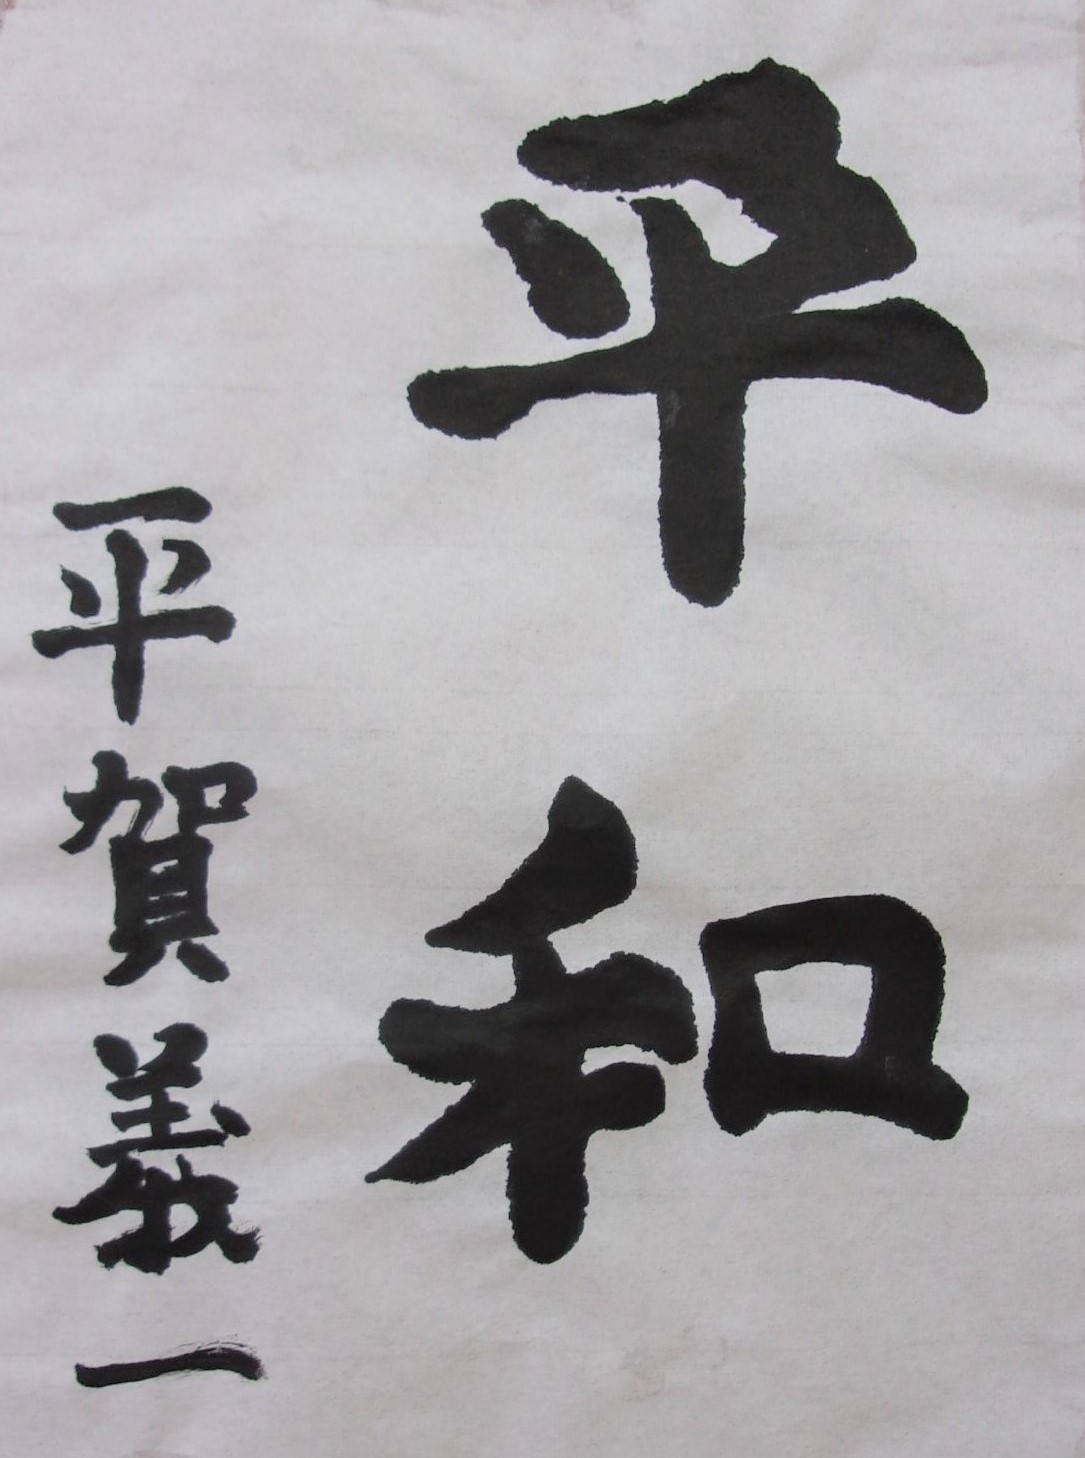 平和
平賀義一